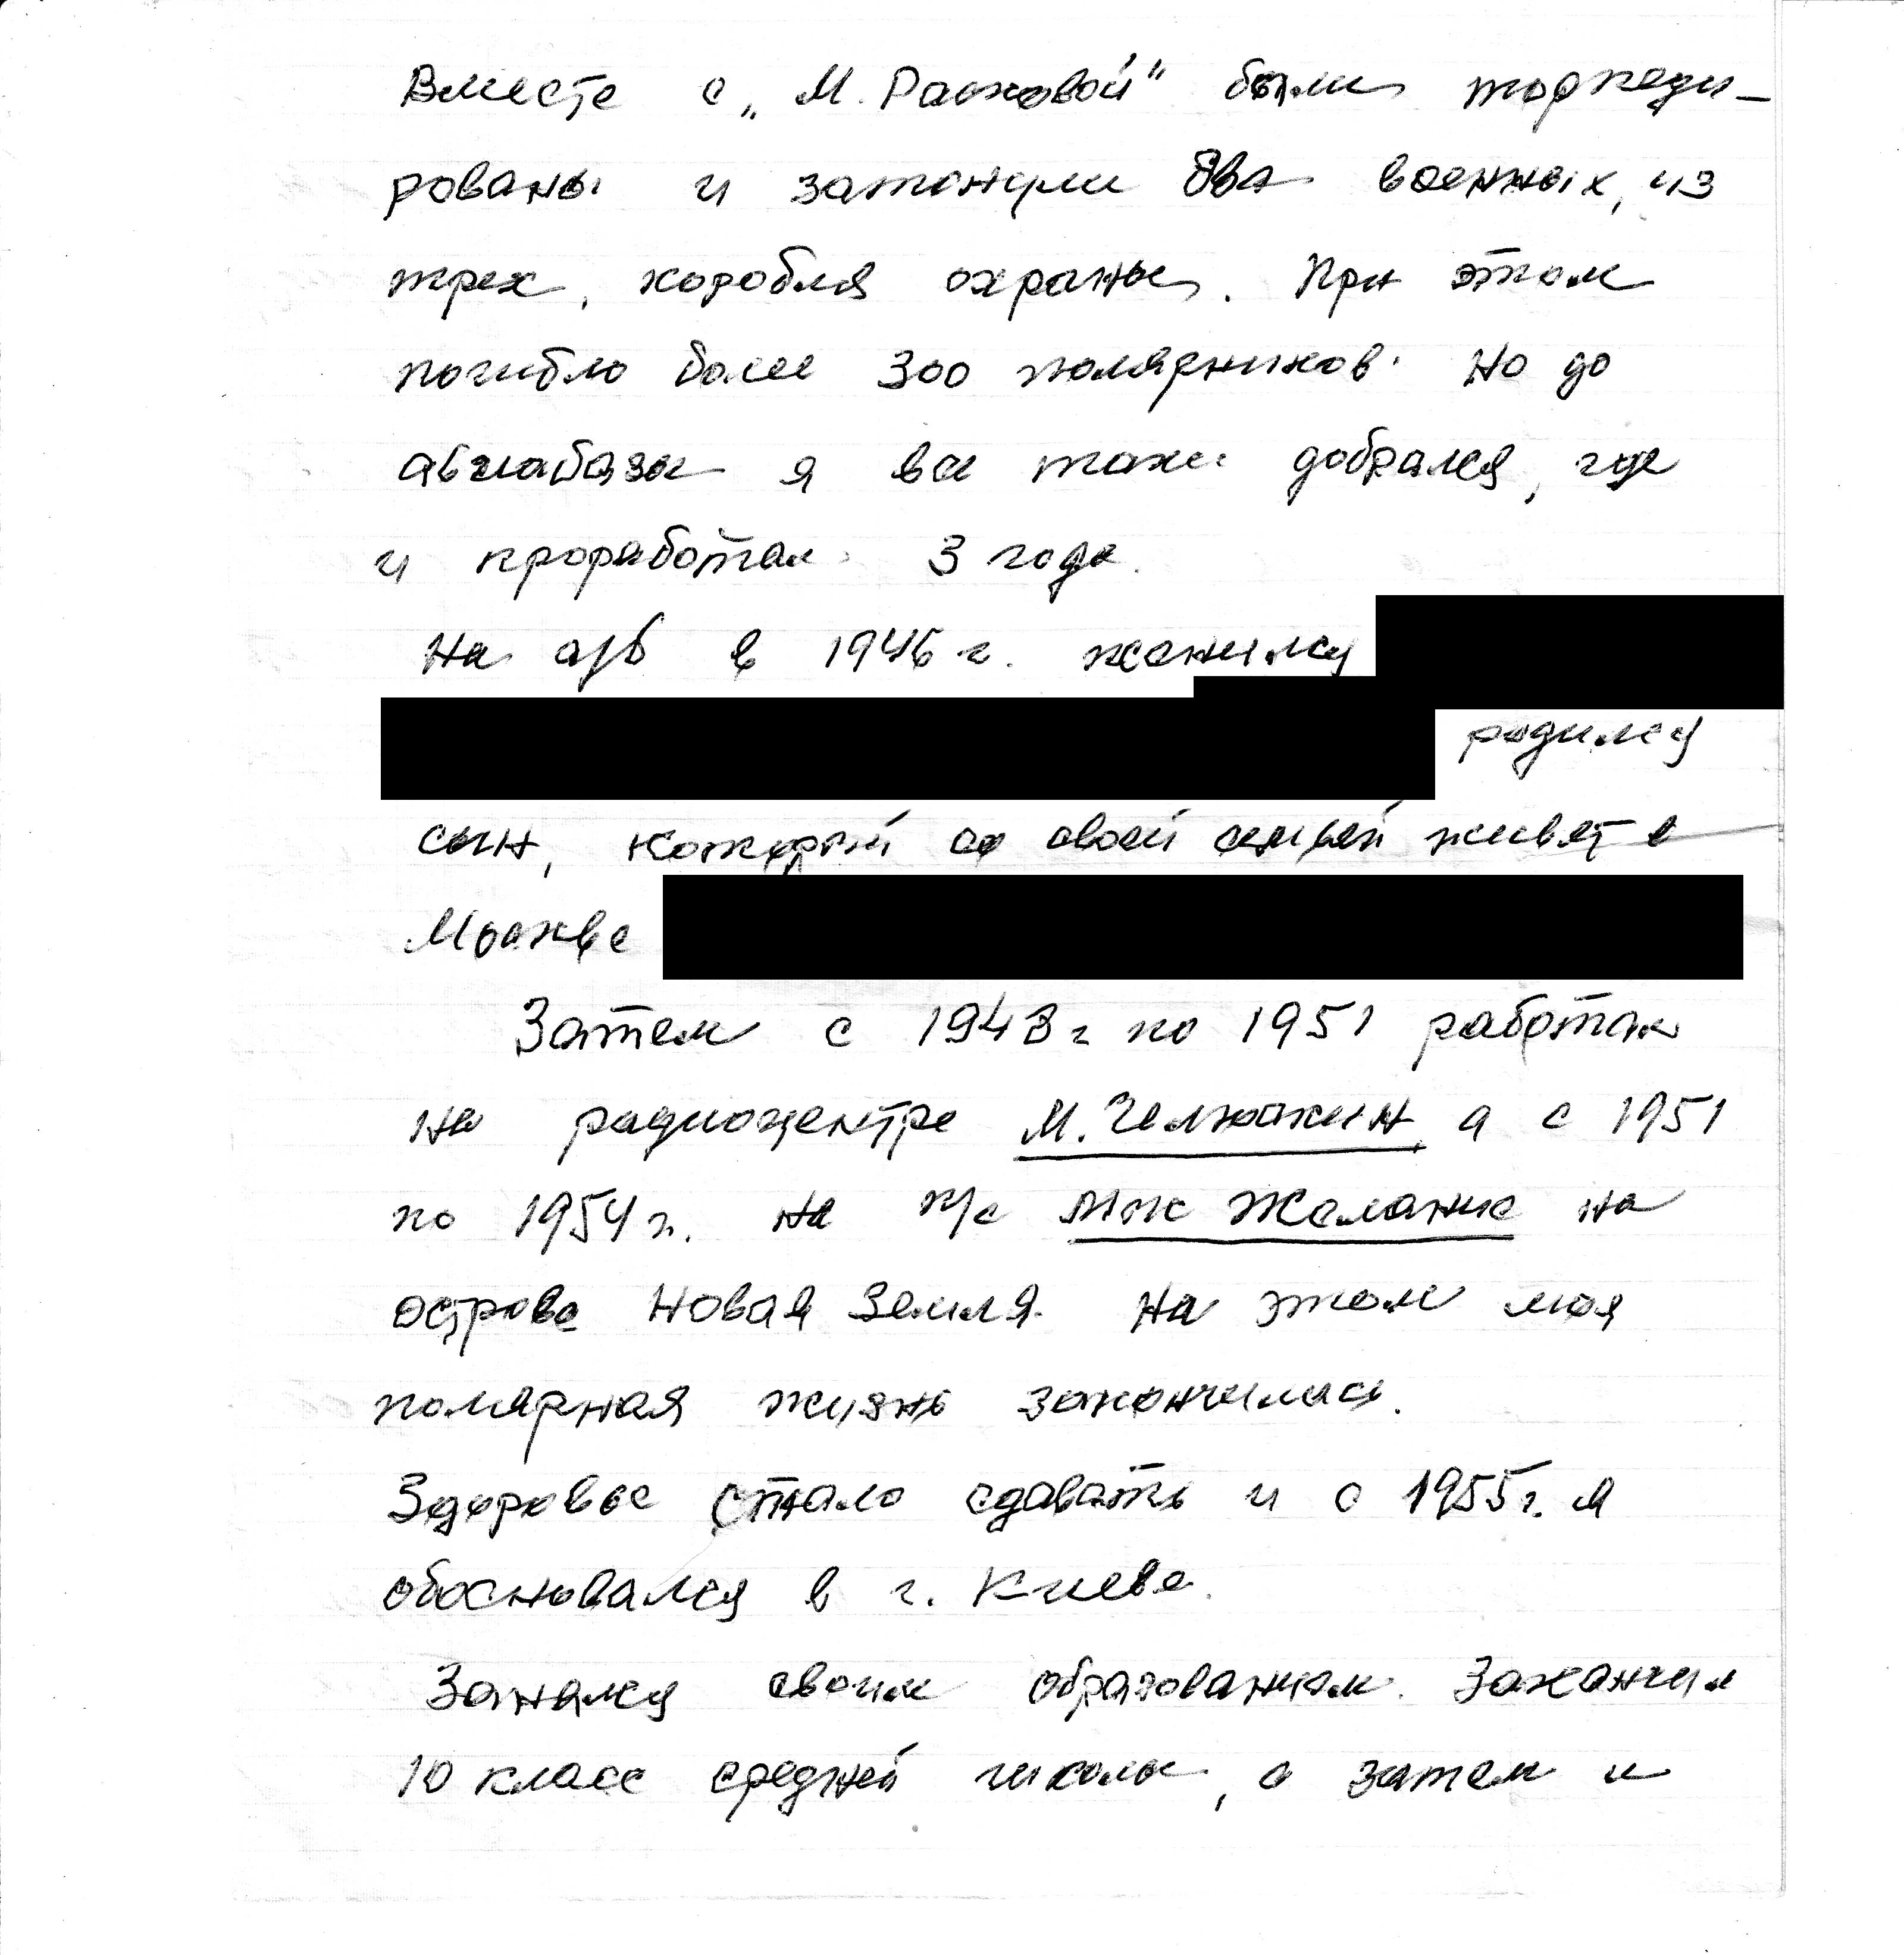 Вместе с „М. Расковой" были торпеди-
рованы и затонули два военных, из
трех, корабля охраны. При этом
погибло более 300 полярников. Но до
авиабазы я все таки добрался, где
и проработал 3 года.
На а/б в 1946 г. женился
родился
сын, который со своей семьей живет в
Москве
Затем с 1948 г по 1951 работал
на радиоцентре М. Челюскин, а с 1951
по 1954 г. на п/с Мыс Желание на
острове Новая Земля. На этом моя
полярная жизнь закончилась.
Здоровье стало сдавать и с 1955 г. я
обосновался в г. Киеве.
Занялся своим образованием. Закончил
10 класс средней школы, а затем и